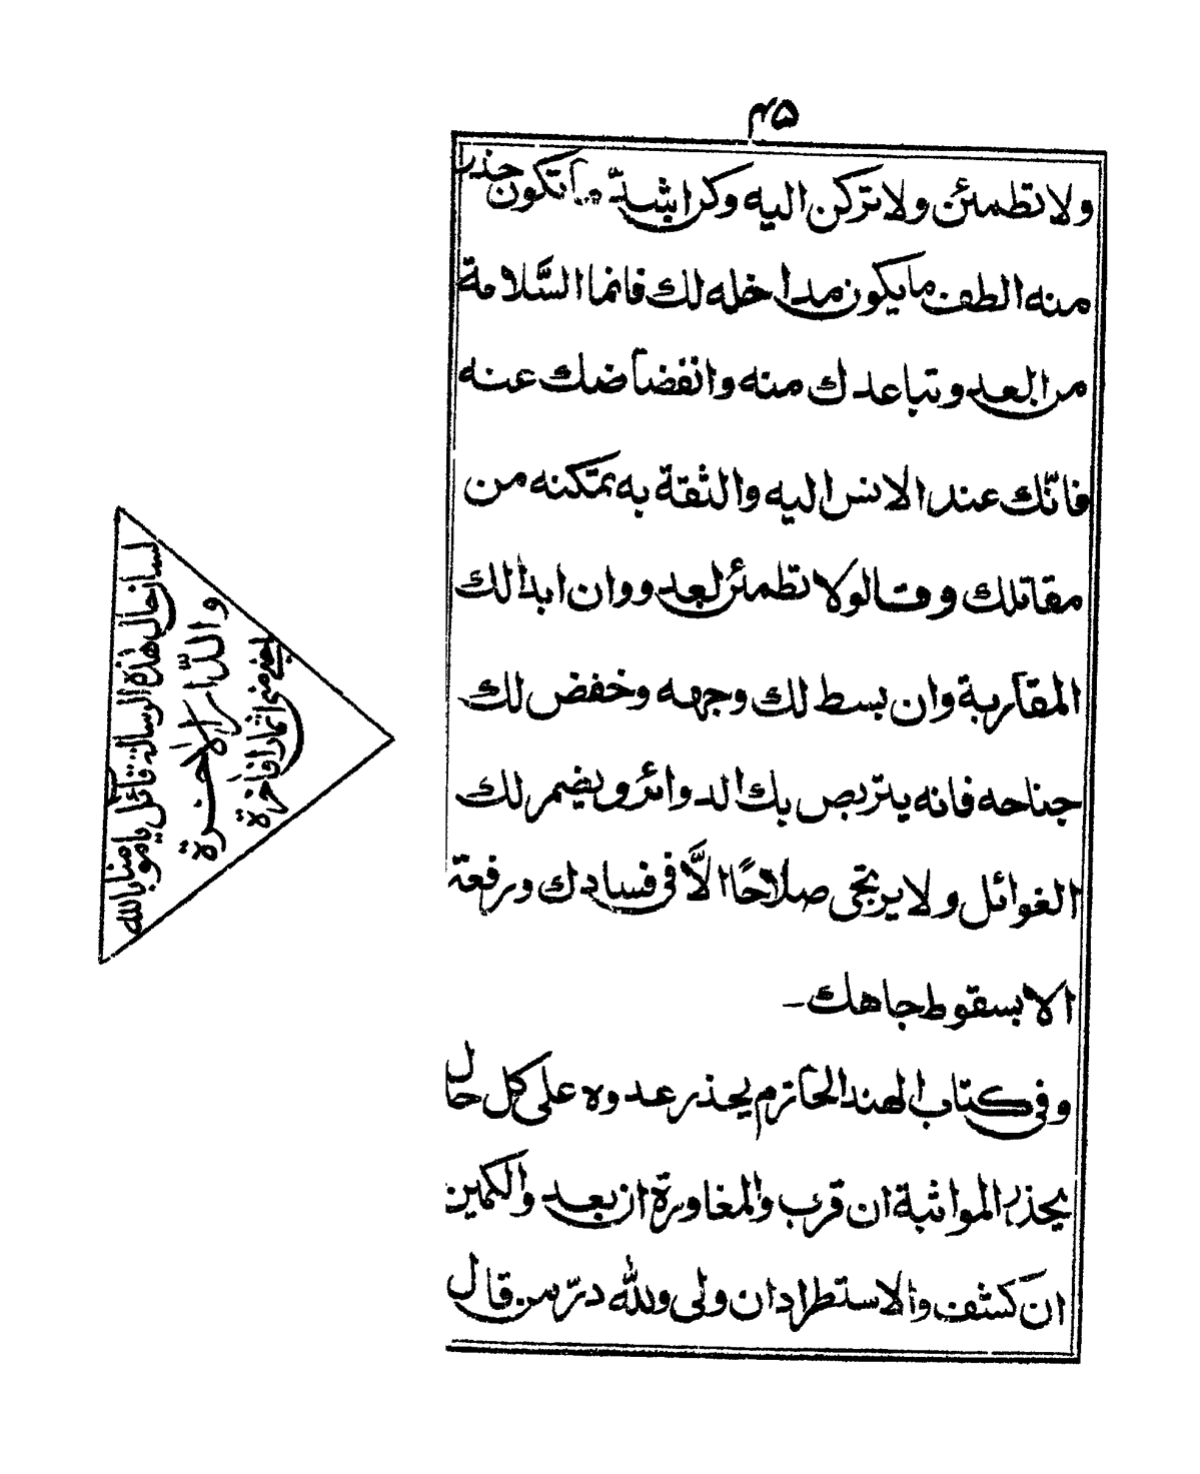 ۴۵
ولا تطمئن ولا تركن اليه وكن اشدّ ما تكون حذرا
منه الطف ما يكون مداخله لك فانما السَّلامة
من العدو تباعدك منه وانقضاضك عنه
فانّك عند الانس اليه والثقة به تمكنه من
مقاتلك وقالوا لا تطمئن لعدو وان ابدالك
المقاربة وان بسط لك وجهه وخفض لك
جناحه فانه يتربص بك الدوائر ويضمر لك
الغوائل ولا يرتجى صلاحًا الَّا فى فسادك ورفعة
الا بسقوط جاهك -
وفى كتاب الهند الحازم يحذر عدوه على كل حال
يحذر المواثبة ان قرب والمغاورة ان بعد والكمين
ان كشف والاستطراد ان ولى ولله درّ من قال
لسان حال هذه الرسالة قائل يا مومنا بالله
والدّار الآخرة
منى اثمارا فاخرة